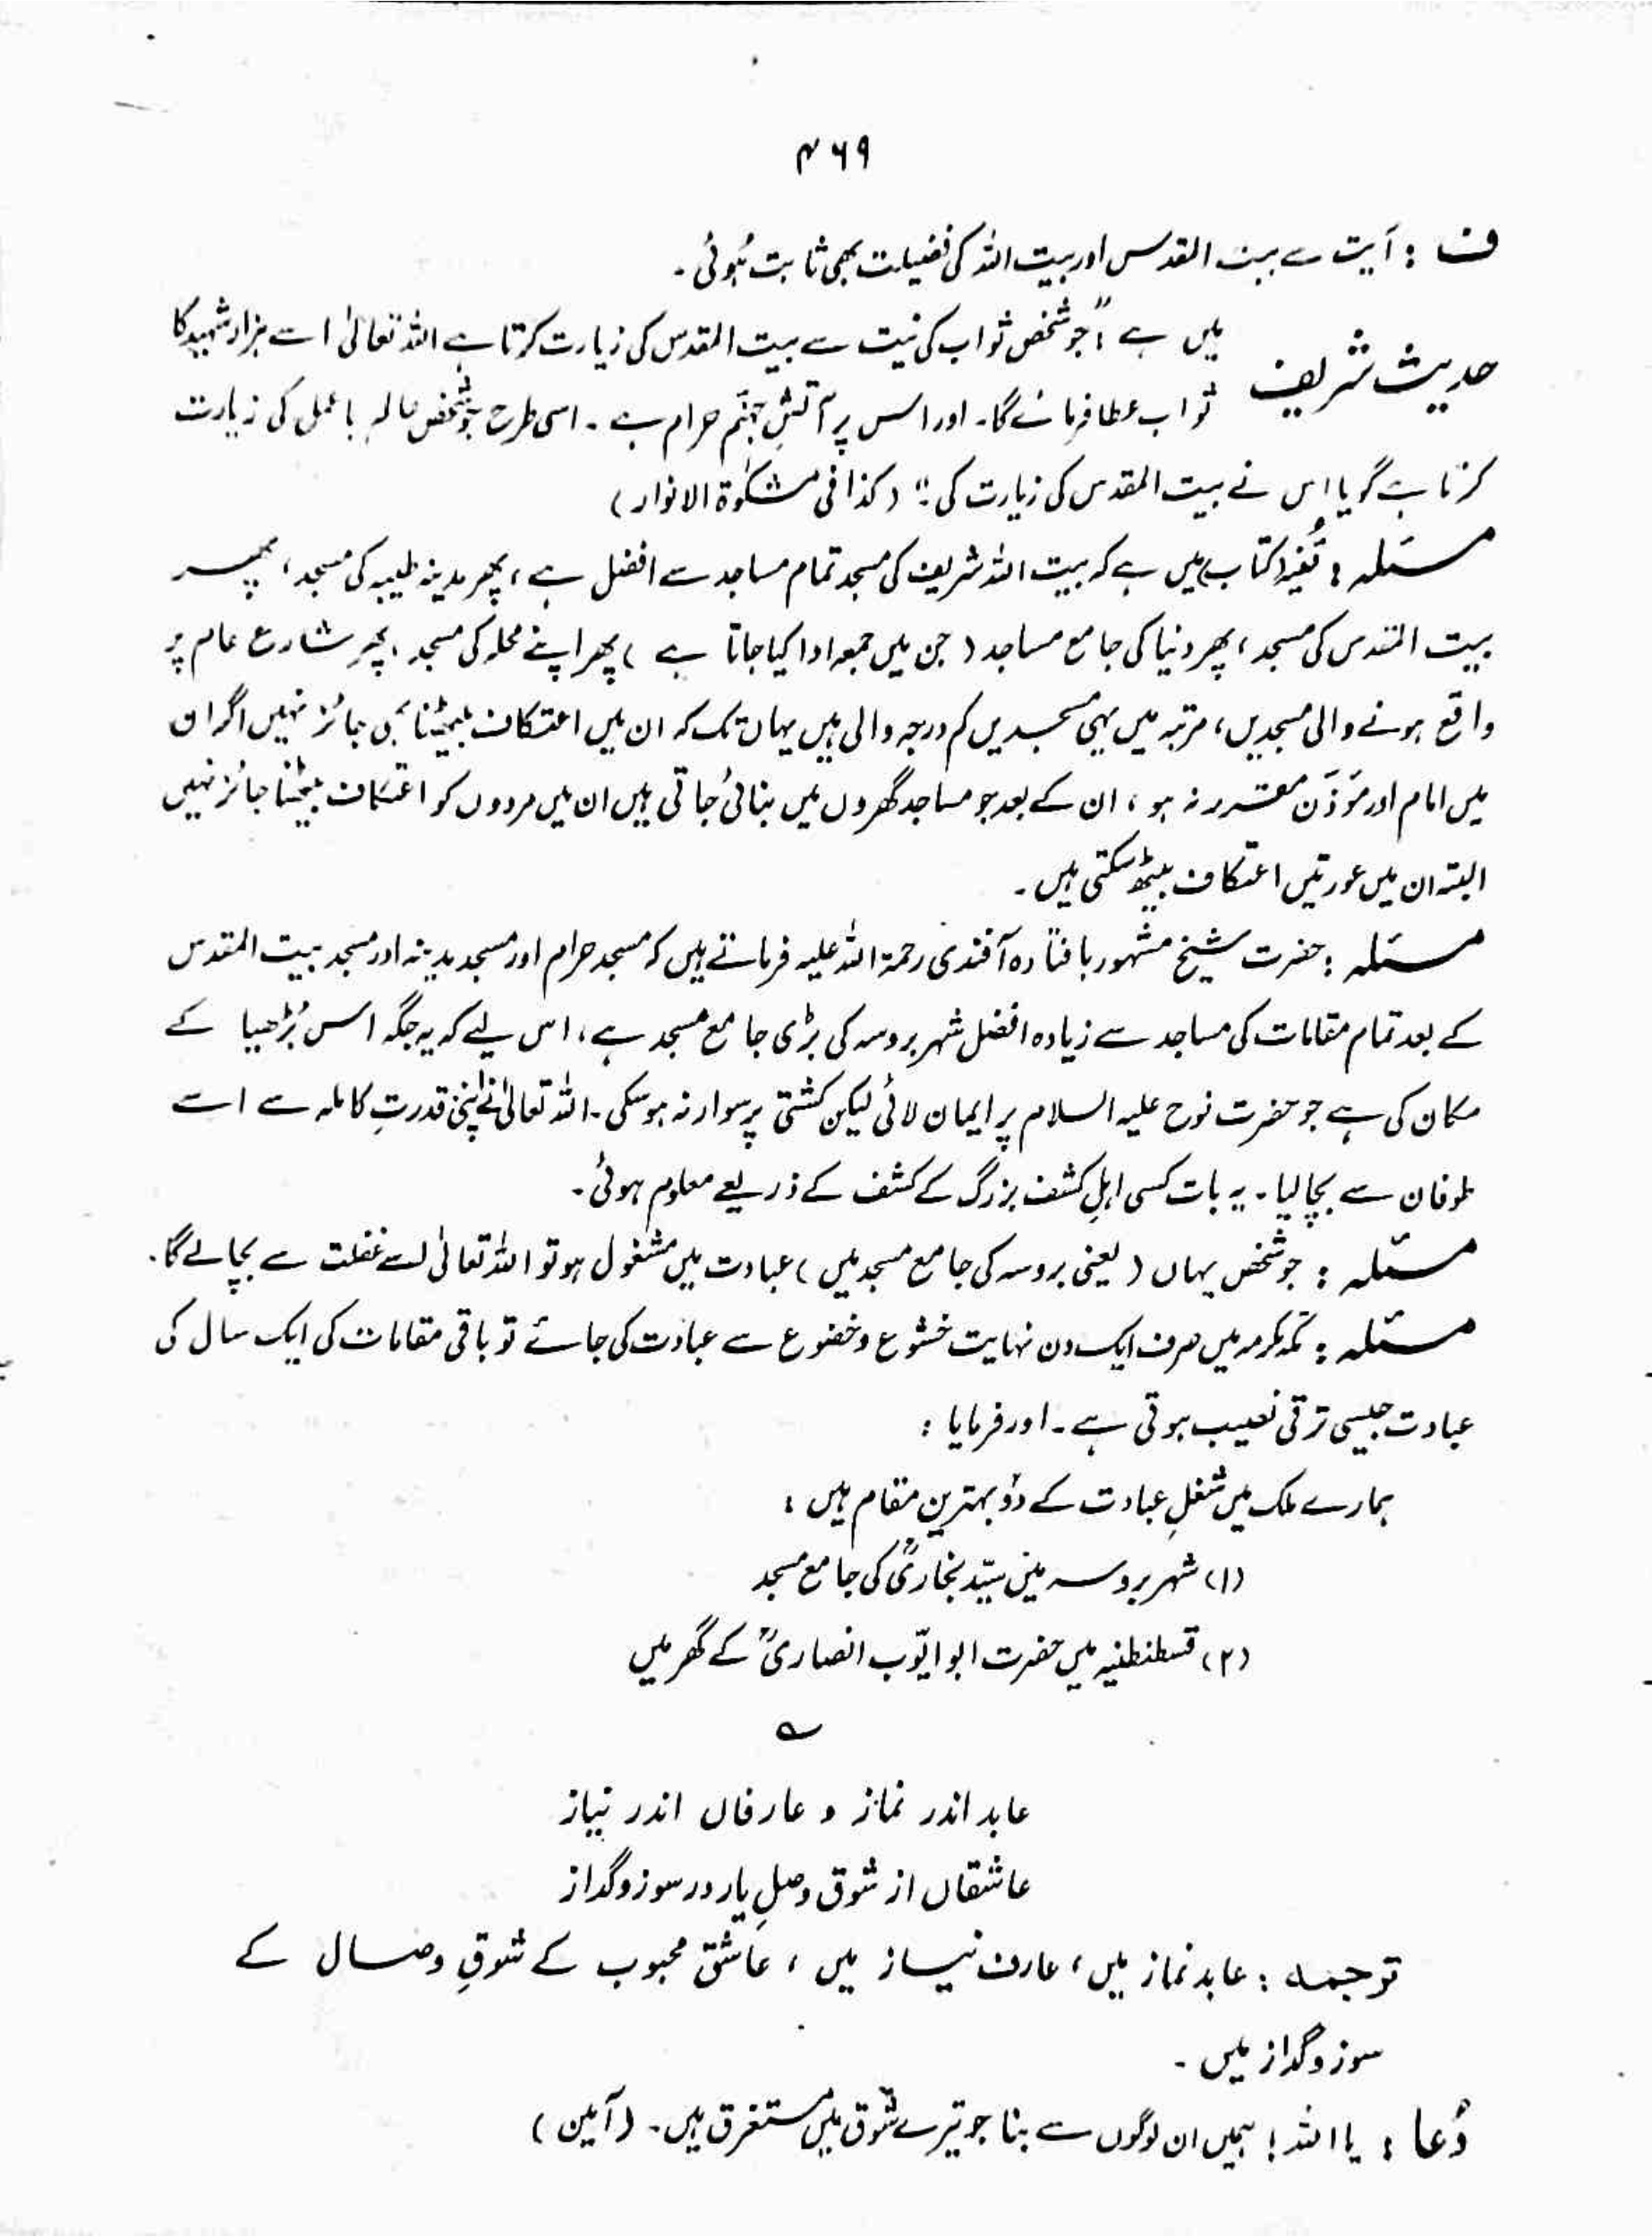 ۴۶۹
ف : آیت سے بیت المقدس اور بیت اللہ کی فضیلت بھی ثابت ہُوئی ۔
حدیث شریف میں ہے : "جو شخص ثواب کی نیت سے بیت المقدس کی زیارت کرتا ہے اللہ تعالیٰ اسے ہزار شہید کا
ثواب عطا فرمائے گا۔ اور اس پر آتشِ جہنّم حرام ہے ۔ اسی طرح جو شخص عالم باعمل کی زیارت
کرتا ہے گویا اس نے بیت المقدس کی زیارت کی :" (کذا فی مشکٰوۃ الانوار)
مسئلہ : (کتاب) میں ہے کہ بیت اللہ شریف کی مسجد تمام مساجد سے افضل ہے ، پھر مدینہ طیبہ کی مسجد ، پھر
بیت المقدس کی مسجد ، پھر دنیا کی جامع مساجد ( جن میں جمعہ ادا کیا جاتا ہے ) پھر اپنے محلہ کی مسجد ، پھر شارع عام پر
واقع ہونے والی مسجدیں ، مرتبہ میں یہی مسجدیں کم درجہ والی ہیں یہاں تک کہ ان میں اعتکاف بیٹھنا بھی جائز نہیں اگر ان
میں امام اور مؤذن مقرر نہ ہو ، ان کے بعد جو مساجد گھروں میں بنائی جاتی ہیں ان میں مردوں کو اعتکاف بیٹھنا جائز نہیں
البتہ ان میں عورتیں اعتکاف بیٹھ سکتی ہیں ۔
مسئلہ : حضرت شیخ مشہور بافتادہ آفندی رحمۃ اللہ علیہ فرماتے ہیں کہ مسجد حرام اور مسجد مدینہ اور مسجد بیت المقدس
کے بعد تمام مقامات کی مساجد سے زیادہ افضل شہر بروسہ کی بڑی جامع مسجد ہے ، اس لیے کہ یہ جگہ اس بُڑھیا کے
مکان کی ہے جو حضرت نوح علیہ السلام پر ایمان لائی لیکن کشتی پر سوار نہ ہو سکی ۔ اللہ تعالیٰ نے اپنی قدرتِ کاملہ سے اسے
طوفان سے بچا لیا ۔ یہ بات کسی اہلِ کشف بزرگ کے کشف کے ذریعے معلوم ہوئی ۔
مسئلہ : جو شخص یہاں ( یعنی بروسہ کی جامع مسجد میں ) عبادت میں مشغول ہو تو اللہ تعالیٰ اسے غفلت سے بچا لے گا ۔
مسئلہ : مکہ مکرمہ میں صرف ایک دن نہایت خشوع و خضوع سے عبادت کی جائے تو باقی مقامات کی ایک سال کی
عبادت جیسی ترقی نصیب ہوتی ہے ۔ اور فرمایا :
ہمارے ملک میں شغلِ عبادت کے دو بہترین مقام ہیں :
(۱) شہر بروسہ میں سیّد بخاریؒ کی جامع مسجد
(۲) قسطنطنیہ میں حضرت ابو ایّوب انصاریؓ کے گھر میں
؎
عابد اندر نماز و عارفاں اندر نیاز
عاشقاں از شوق وصلِ یار در سوز و گداز
ترجمہ : عابد نماز میں ، عارف نیاز میں ، عاشق محبوب کے شوقِ وصال کے
سوز و گداز میں ۔
دُعا : یا اللہ ! ہمیں ان لوگوں سے بنا جو تیرے شوق میں مستغرق ہیں ۔ (آمین)